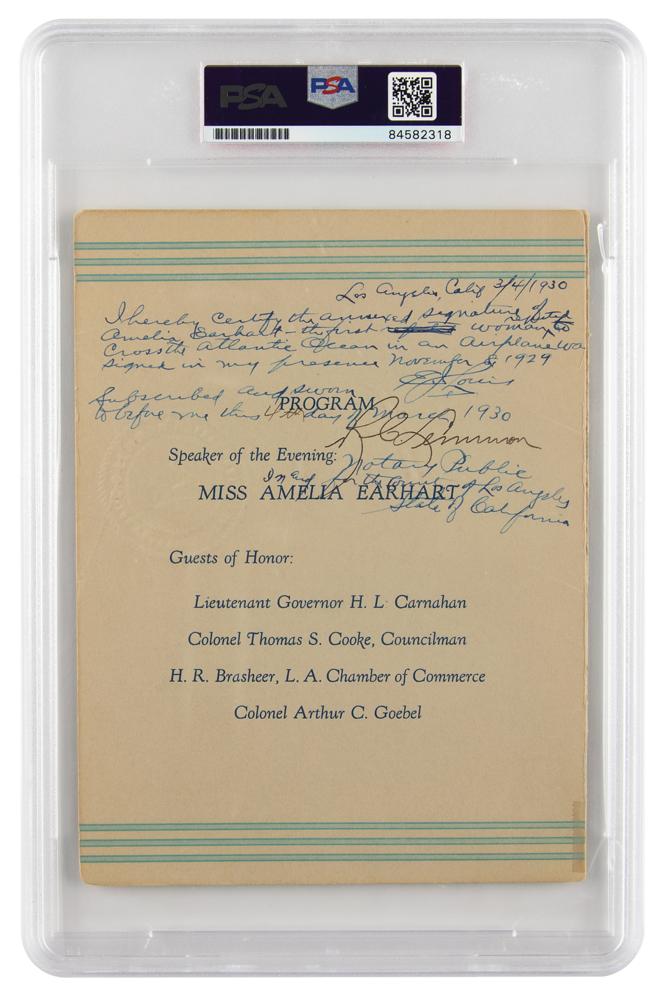 PSA
PSA
84582318
Los Angeles, Calif 3/4/1930
I hereby certify the annexed signature of
Amelia Earhart - the first woman to
cross the Atlantic Ocean in an Airplane was
signed in my presence November 1929
Subscribed and sworn
to before me this 4th day of March 1930
PROGRAM
Speaker of the Evening:
Notary Public
In and for the of Los Angeles
MISS AMELIA EARHART
State of California
Guests of Honor:
Lieutenant Governor H. L Carnahan
Colonel Thomas S. Cooke, Councilman
H. R. Brasheer, L. A. Chamber of Commerce
Colonel Arthur C. Goebel